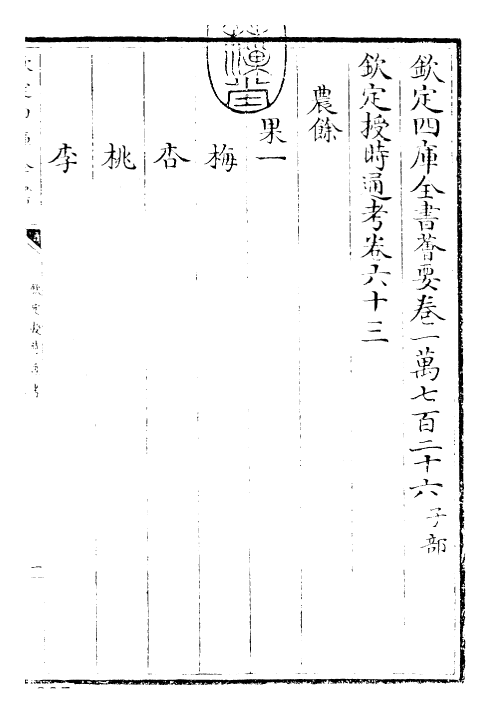 欽定四庫全書薈要卷一萬七百二十六子部
欽定授時通考卷六十三
農餘
果一
梅
杏
桃
李
欽定授時通考
一